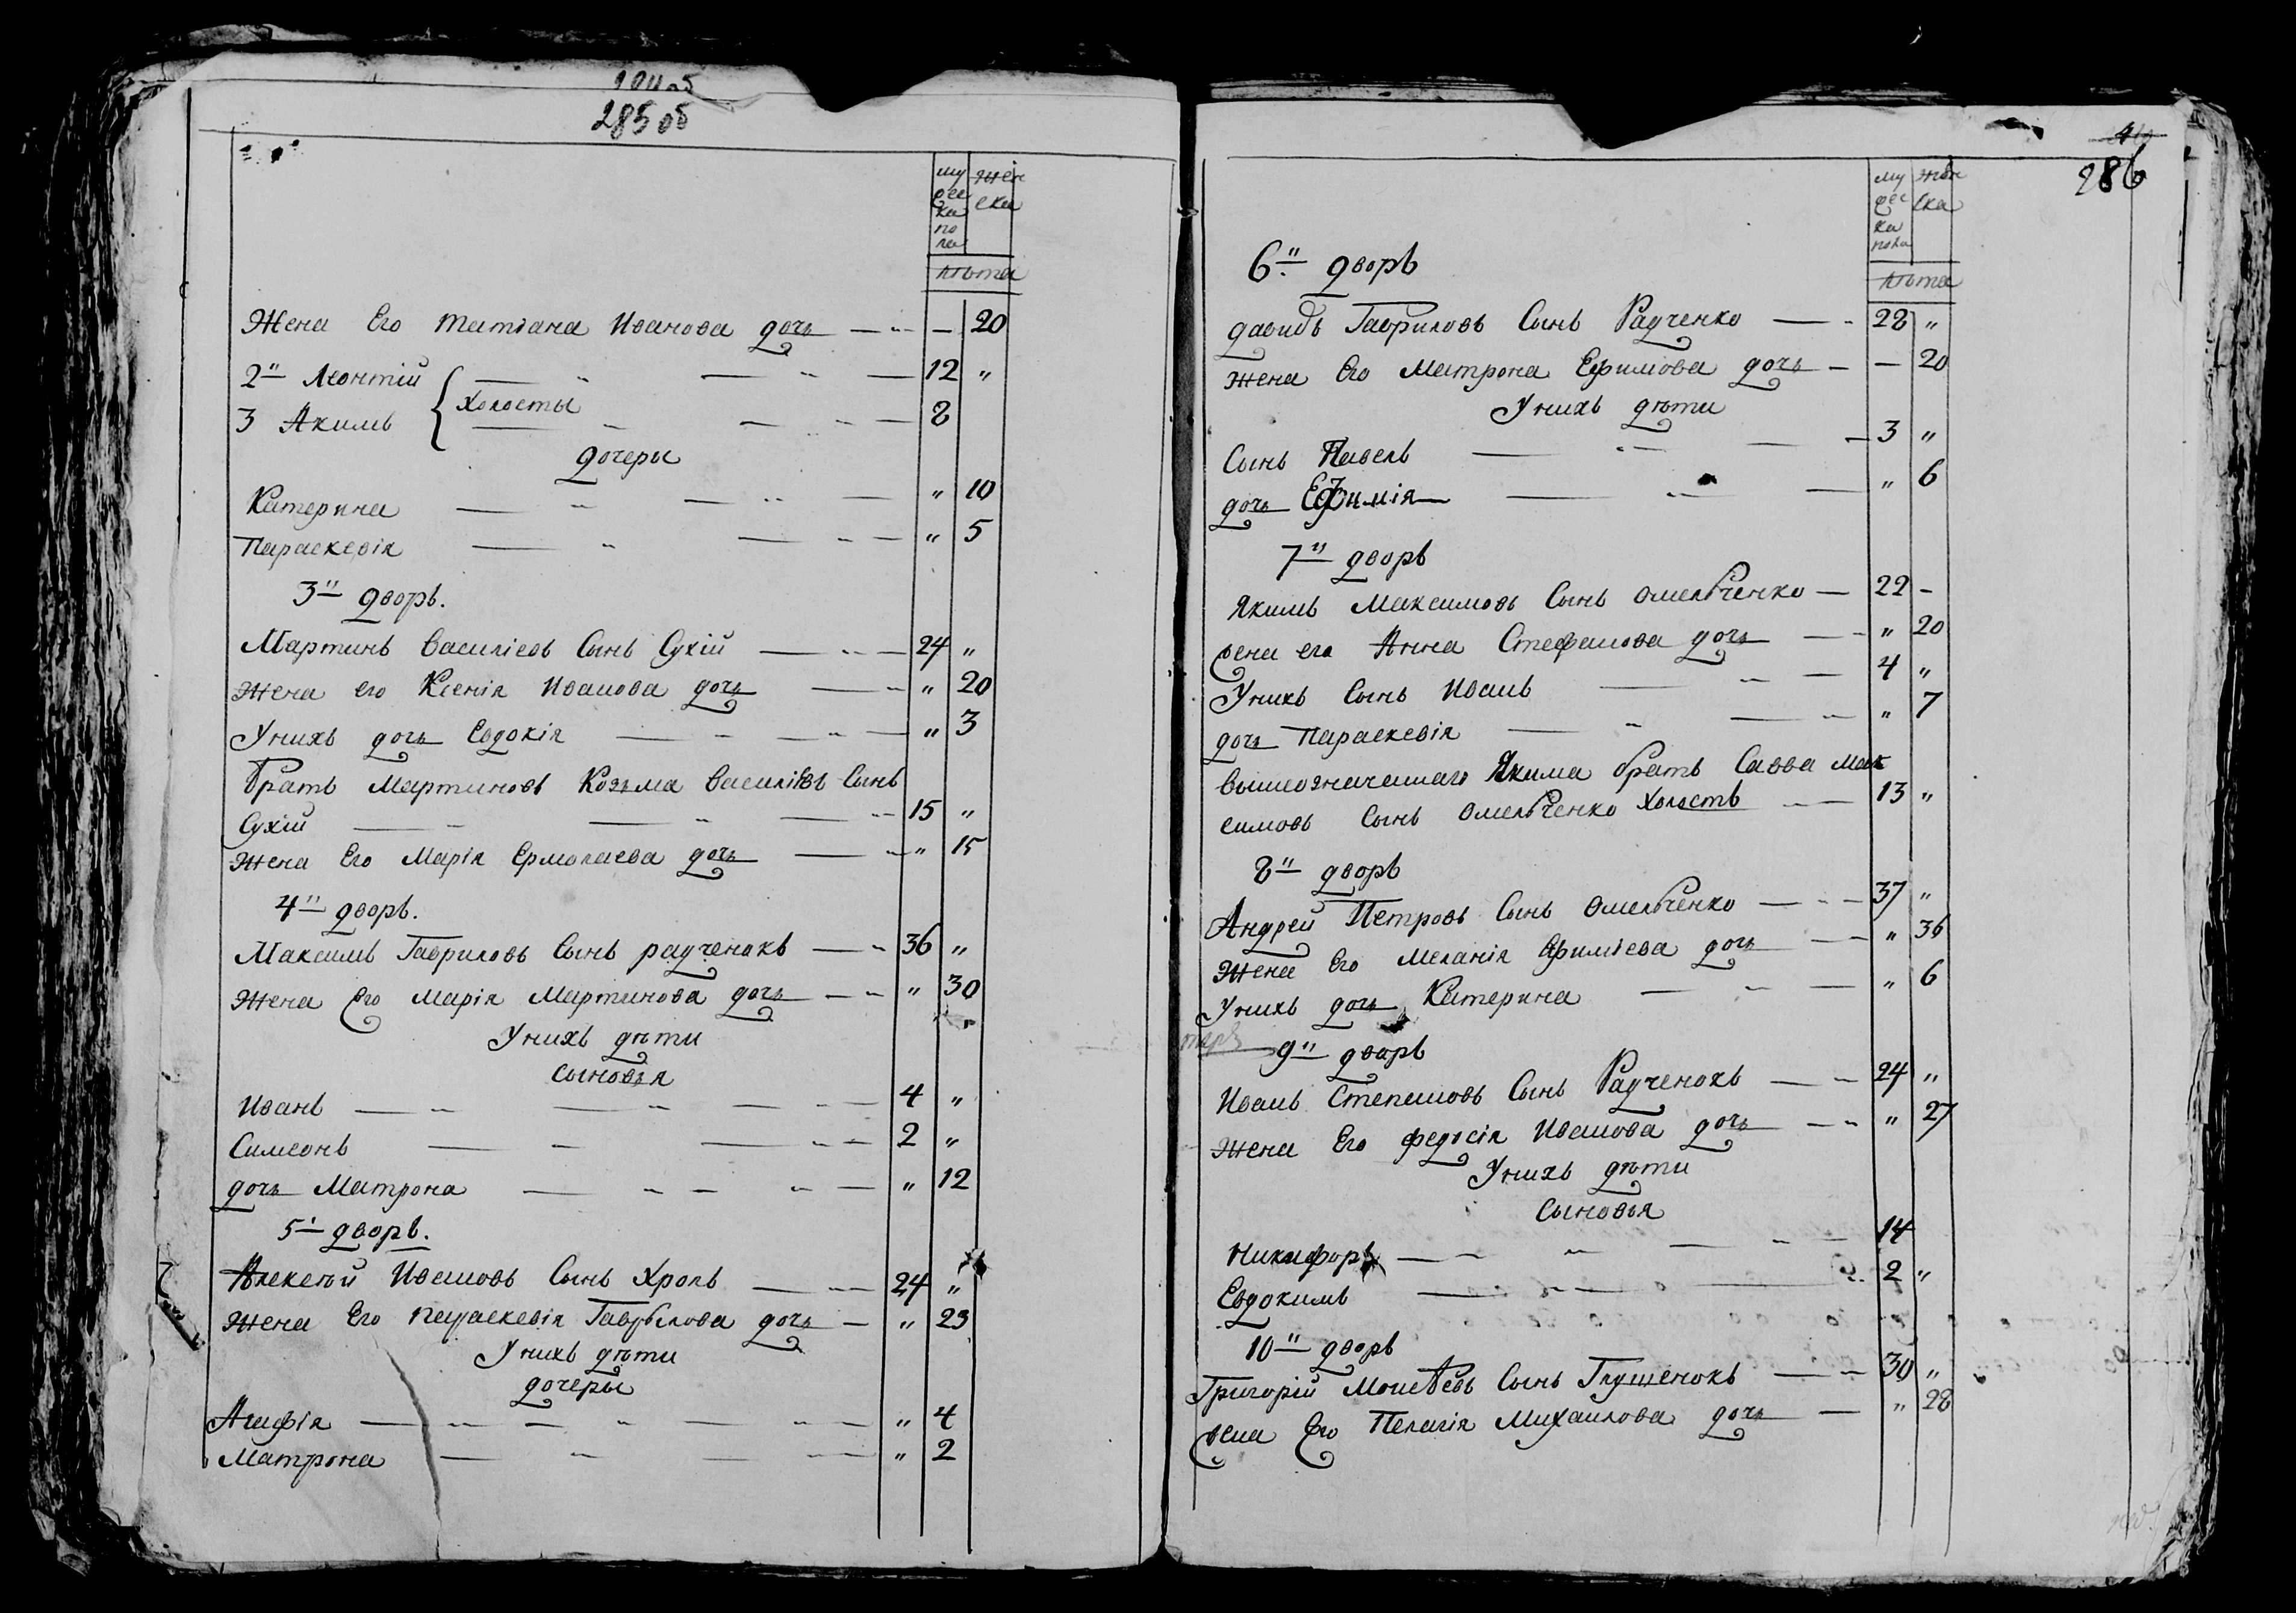 285 об
му жен
чес ска
ка
по
ла
лѣта
Жена Его татіана Иванова дочь — — 20
2й Леонтій — — 12 "
Холосты
3 Акимъ — — 8
дочеры
Катерина — — " 10
Параскевія — — " 5
3й дворъ.
Мартинъ Василіевъ Сынъ Сухій — 24 "
жена его Ксенія Иванова дочь — " 20
Унихъ дочь Евдокія — — " 3
братъ Мартиновъ Козьма Василіевъ Сынъ
Сухій — — 15 "
жена Его Марія Ермолаева дочь — " 15
4й дворъ.
Максимъ Гавриловъ Сынъ радченокъ — 36 "
жена Его Марія Мартинова дочь — " 30
Унихъ дѣти
Сыновья
Иванъ — — 4 "
Симеонъ — — 2 "
дочь Матрона — — " 12
5й дворъ.
Алексѣй Ивановъ Сынъ Хроль — 24 "
жена Его параскевія Гаврылова дочь — " 23
Унихъ дѣти
дочеры
Агафія — — " 4
Матрона — — " 2
286
му жен
чес ска
ка
пола
лѣта
6й дворъ
давидъ Гавриловъ Сынъ Радченко — 28 "
жена Его Матрона Ефимова дочь — — 20
Унихъ дѣти
Сынъ Павелъ — — 3 "
дочь Ефимія — — " 6
7й дворъ
Якимъ Максимовъ Сынъ Омельченко — 22 -
жена его Анна Стефанова дочь — " 20
Унихъ Сынъ Иванъ — 4 "
дочь Параскевія — — " 7
вышеозначеннаго Якима братъ Савва Мак
симовъ Сынъ Омельченко Холостъ — 13 "
8й дворъ
Андрей Петровъ Сынъ Омельченко — 37 "
Жена Его Меланія Ефимѣева дочь — " 36
Унихъ дочь Катерина — " 6
9й дворъ
Иванъ Степановъ Сынъ Радченокъ — 24 "
жена Его федосія Иванова дочь — " 27
Унихъ дѣти
Сыновья
Никифоръ — — 14
Евдокимъ — — 2 "
10й дворъ
Григорій Моисѣевъ Сынъ Глущенокъ — 30 "
жена Его Пелагія Михаилова дочь — " 28